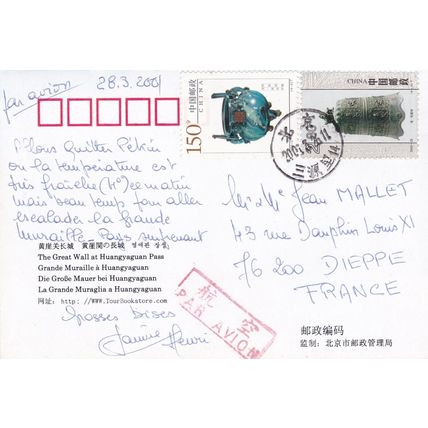 par avion
28.3.2001
中国邮政
CHINA
150
CHINA 中国邮政
北京
2001
三源里14
Allons quitter Pékin
ou la température est
très fraîche (1°) ce matin
mais beau temp pour aller
escalader la Grande
Muraille - Pass surprenant
黄崖关长城 黄崖関の長城
The Great Wall at Huangyaguan Pass
Grande Muraille à Huangyaguan
Die Große Mauer bei Huangyaguan
La Grande Muraglia a Huangyaguan
网址: http: //WWW.TourBookstore.com
Grosses bises
Henri
Mr Mme Jean MALLET
43 rue Dauphin Louis XI
76200 DIEPPE
FRANCE
航空
PAR AVION
邮政编码
监制: 北京市邮政管理局